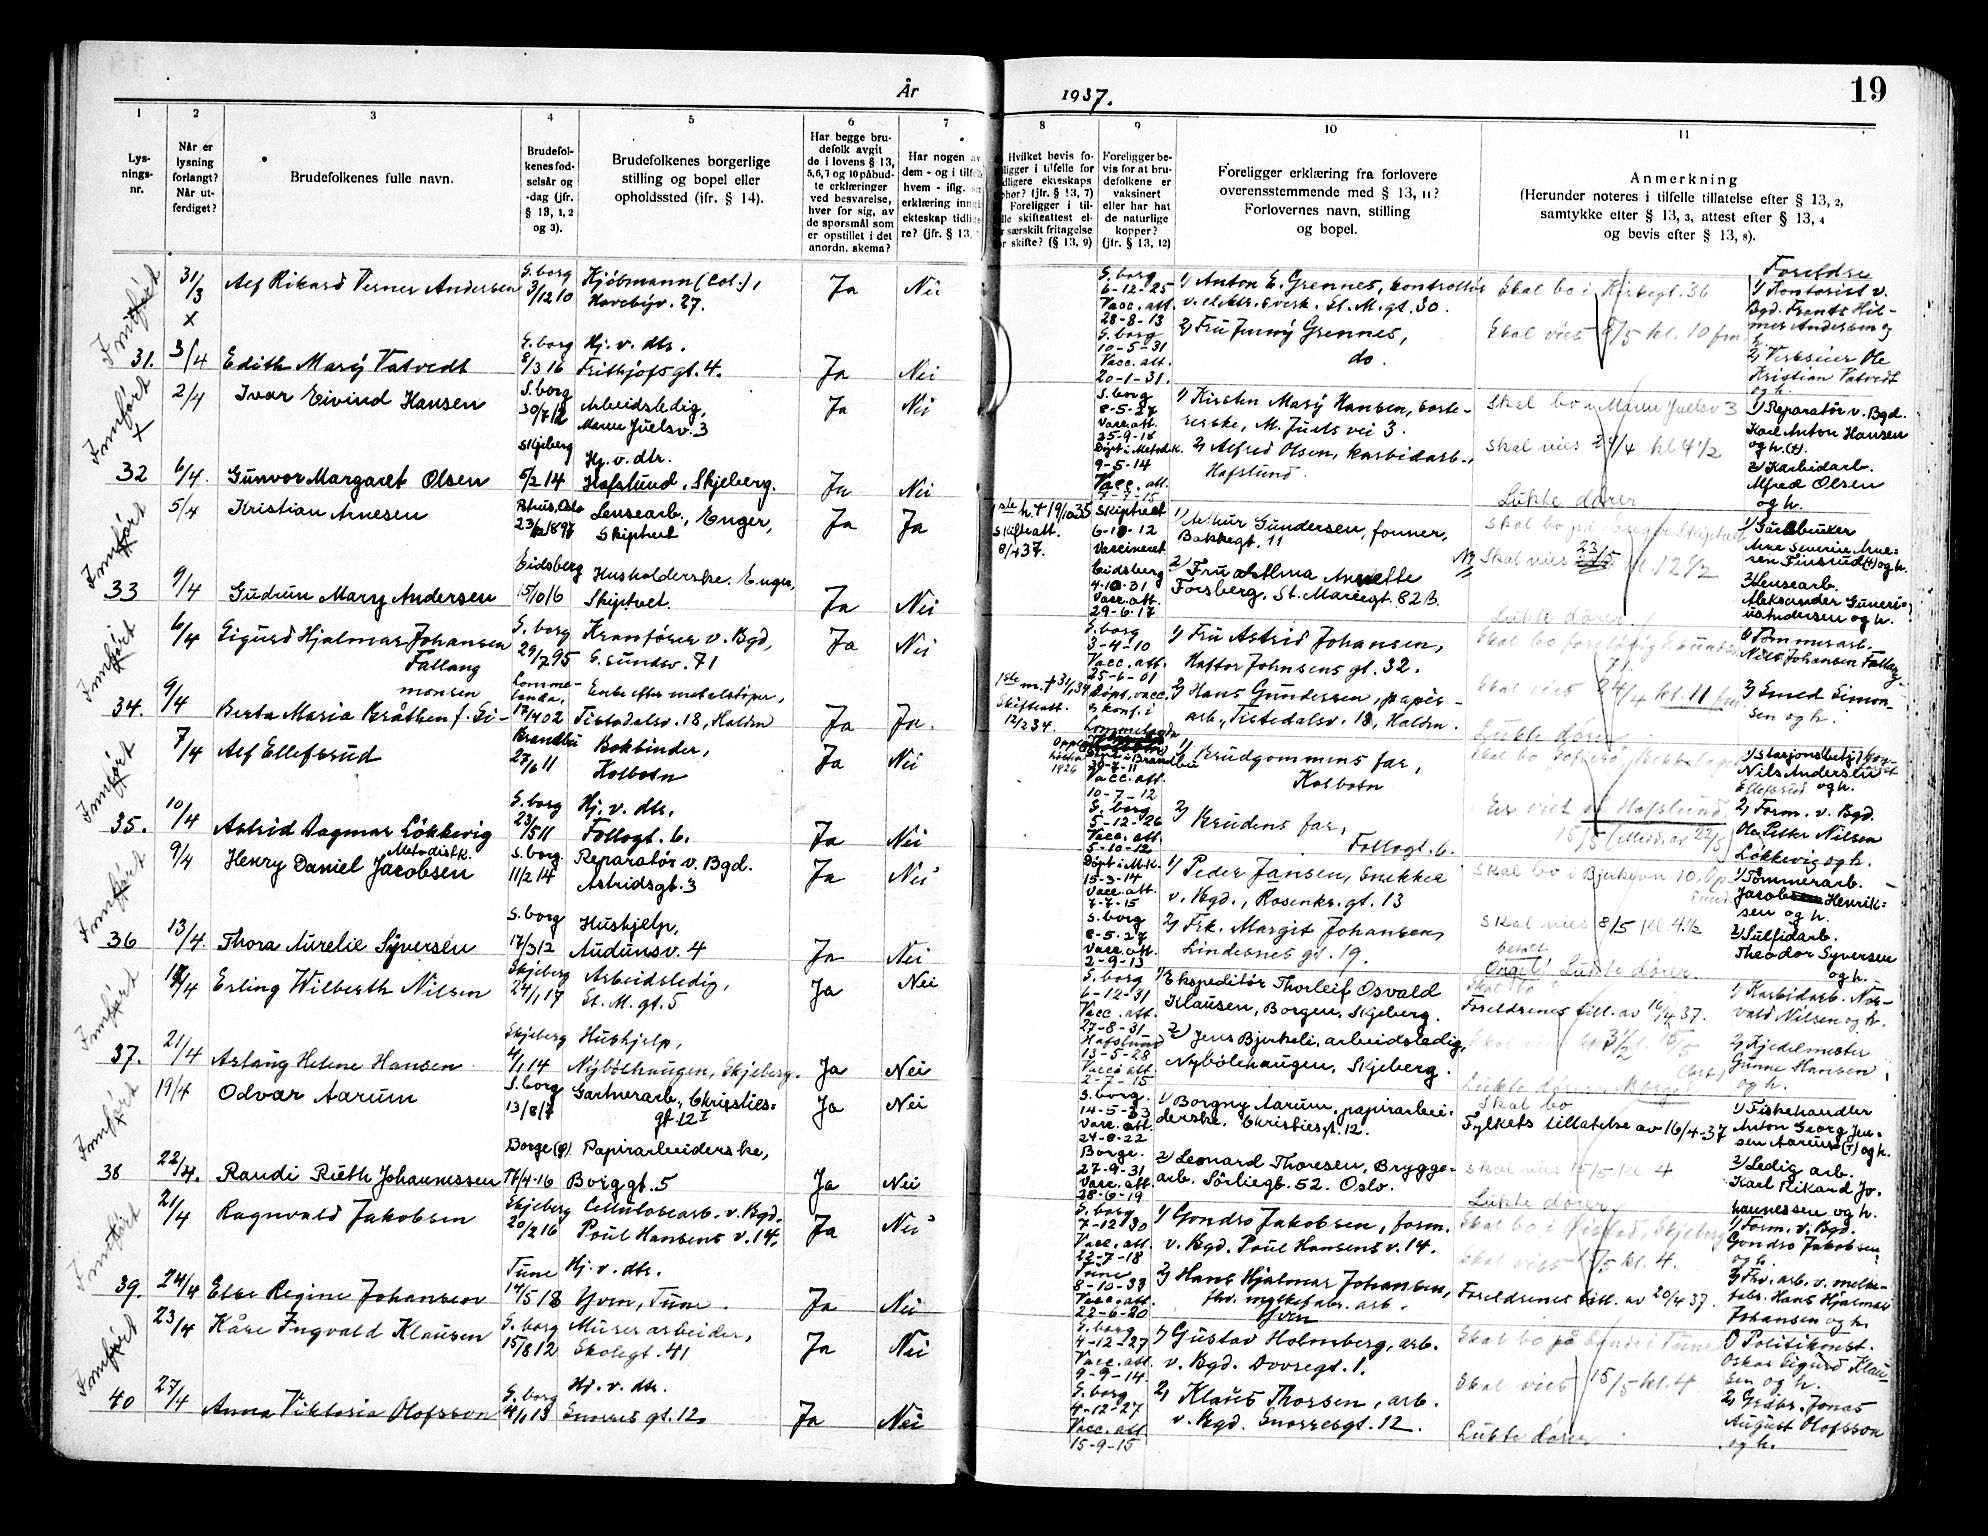 År
1937.
19
1
2
3
4
5
6
7
8
9
10
11
Lys-
nings-
nr.
Når er
lysning
forlangt?
Når ut-
ferdiget?
Brudefolkenes fulle navn.
Brudefol-
kenes fød-
selsår og
-dag (jfr.
§ 13, 1, 2
og 3).
Brudefolkenes borgerlige
stilling og bopel eller
opholdssted (ifr. § 14).
Har begge bru-
defolk avgit
de i lovens § 13,
5,6,7 og 10 påbud-
te erklæringer
ved besvarelse,
hver for sig, av
de spørsmål som
er opstillet i det
anordn. skema?
Har nogen av
dem - og i tilfe
hvem - iflg.
erklæring inng
ekteskap tidlig
re? (jfr. § 13,
Hvilket bevis fo-
ligger i tilfelle for
dligere ekteskaps
phør? (jfr. § 13, 7)
Foreligger i til-
lle skifteattest el-
særskilt fritagelse
r skifte? (§ 13, 9)
Foreligger be-
vis for at bru-
defolkene er
vaksinert
eller har hat
de naturlige
kopper?
(jfr. § 13, 12)
Foreligger erklæring fra forlovere
overensstemmende med § 13, 11?
Forlovernes navn, stilling
og bopel.
Anmerkning
(Herunder noteres i tilfelle tillatelse efter § 13, 2,
samtykke efter § 13, 3, attest efter § 13, 4
og bevis efter § 13, 8).
Innført
31/3
x
Alf Rikard Verner Andersen
S.borg
3/12 10
Kjøbmann (col.),
Havebyv. 27.
Ja
Nei
S. borg
6-12-25
Vacc. att.
28-8-13
1) Anton E. Grennes, kontrollør
v. elektr. verk. St. M. gt. 30.
Skal bo i Kirkegt. 36
Foreldre
1) Kontorist v.
Bgd. Frants Hil-
mer Andersen og
h.
31.
3/4
Edith Mary Vatvedt
S. borg
8/3 16
Hj. v. dtr.
Frithjofs gt. 4.
Ja
Nei
S. borg
10-5-31
Vacc. att.
20-1-31.
2) Fru Jenny Grennes,
do.
Skal vies 8/5 kl. 10 fm
2) Verkseier Ole
Kristian Vatvedt
og h.
Innført
2/4
x
Ivar Eivind Hansen
S. borg
30/7 12
Arbeidsledig,
Marie Juelsv. 3
Ja
Nei
S. borg
8-5-27
Vacc. att.
25-9-18
1) Kirsten Mary Hansen,
M. Juels vei 3.
Skal bo Marie Juelsv 3
1) Reparatør v. Bgd.
Karl Anton Hansen
og h. (†).
32
6/4.
Gunvor Margaret Olsen
Skjeberg
5/2 14
Hj. v. dtr.
Hafslund, Skjeberg.
Ja
Nei
Døpt i Metodistk.
9-5-14
Vacc. att.
7-7-15
2) Alfred Olsen, karbidarb.,
Hafslund.
Skal vies 24/4 kl 4 1/2
Lukte dører
2) Karbidarb.
Alfred Olsen
og h.
Innført
5/4
Kristian Arnesen
Petrus, Oslo
Lensearb., Enger,
Skiptvet
Ja
Ja
1ste h. † 19/10 35
Skifteatt.
8/4 37.
Skiptvet
6-10-12
Vaccineret
1) Arthur Gundersen, former,
Bakkegt. 11
Skal bo på Enger Skiptvet
1) Gårdbruker
Arne Severin Arne-
sen Finsrud (†) og h.
33
9/4
Gudrun Mary Andersen
Eidsberg
15/10 16
Husholderske. Enger,
Skiptvet.
Ja
Nei
Eidsberg
4-10-31
Vacc. att.
29-6-17
2) Fru Alma Annette
Forsberg, St. Mariegt. 82 B.
NB
Skal vies kl. 12 1/2
Lukte dører
2) Lensearb.
Aleksander
Andersen og h.
Innført
6/4
Sigurd Hjalmar Johansen
Fallang
S. borg
29/7 95
Kranfører v. Bgd,
G. sundsv. 71
Ja
Nei
S. borg
3-4-10
Vacc. att.
25-6-01
1) Fru Astrid Johansen,
Haftor Johnsens gt. 32.
71.
1) Tømmerarb.
Nils Johansen Fallang
34.
9/4
Berta Maria Bråthen f. Si-
monsen
17/4 02
Enke efter metalstøper,
Tistedalsv. 18, Halden
Ja
Ja.
1ste m. † 31/1 34
Skifteatt.
12/2 34.
Døpt, vacc.
& konf. i
2) Hans Gundersen, papir-
arb., Tistedalsv. 18, Halden.
Skal vies 24/4 kl. 11 fm
Lukte dører
2) Smed Simon-
sen og h.
Innført
7/4
Alf Ellefsrud
Brandbu
27/6 11
Bokbinder,
Kolbotn
Ja
Nei
1926
Vacc. att.
10-7-12
1) Brudgommens far,
Kolbotn
Nils Andersen
Ellefsrud og h.
35.
10/4
Astrid Dagmar Løkkevig
S. borg
23/5 11
Hj. v. dtr.
Follogt. 6.
Ja
Nei
S. borg
5-12-26
Vacc. att.
5-10-12
2) Brudens far,
Follogt. 6.
Er viet i Hafslund
15/5 (Medd. av 22/5)
2) Form. v. Bgd.
Ole Petter Nilsen
Løkkevig og h.
Innført
9/4
Henry Daniel Jacobsen
Metodistk.
S. borg.
11/2 14
Reparatør v. Bgd.
Astridsgt. 3
Ja
Nei
Døpt i M.K.
15-3-14
Vacc. att.
7-7-15
1) Peder Jansen, snekker
v. Bgd., Rosenkr. gt. 13
1) Tømmerarb.
Jacob Henrik-
sen og h.
36
13/4.
Thora Aurelie Syversen
S. borg
17/3 12
Hushjelp,
Audunsv. 4
Ja
Nei
S. borg
8-5-27
Vacc. att.
2-9-13
2) Frk. Margit Johansen,
Lindesnes gt. 19.
Skal vies 8/5 kl 4 1/2
betalt
Orgel! Lukte dører.
2) Sulfidarb.
Theodor Syversen
og h.
Innført
Erling Wilberth Nilsen
Skjeberg
24/1 17
Arbeidsledig,
St. M. gt. 5
Ja
Nei
S. borg
6-12-31
Vacc. att.
27-8-31
1) Ekspeditør Thorleif Osvald
Klausen, Borgen, Skjeberg.
Skal bo i
Foreldrenes till. av 16/4 37.
1) Karbidarb. Nor-
vald Nilsen og h.
37.
21/4
Aslaug Helene Hansen
Skjeberg
4/1 14
Hushjelp,
Nybølehaugen, Skjeberg.
Ja
Nei
Hafslund
13-5-28
Vacc. att
2-7-15
2) Jens Bjerkeli, arbeidsledig,
Nybølehaugen, Skjeberg.
Lukte dører
2) Kjedelmester
Gunne Hansen
og h.
Innført
19/4
Odvar Aarum
S. borg
13/8 17
Gartnerarb., Christies-
gt. 12 I
Ja
Nei
S. borg.
14-5-33
Vacc. att.
24-8-22
1) Borgny Aarum, papirarbei-
derske, Christiesgt. 12.
Skal bo
Fylkets tillatelse av 16/4-37
1) Fiskehandler
Anton Georg Jen-
sen Aarum (†) og h.
38
22/4.
Randi Ruth Johannessen
Borge (Ø)
17/4-16
Papirarbeiderske,
Borggt. 5
Ja
Nei
Borge.
27-9-31
Vacc. att.
28-6-19
2) Leonard Thoresen, Brygge-
arb. Sørliegt. 52. Oslo.
Skal vies 15/5 kl 4
Lukte dører
2) Ledig arb.
Karl Rikard Jo-
hannessen og h.
Innført
21/4
Ragnvald Jakobsen
Skjeberg
20/2 16
Cellulosearb. v. Bgd.
Poul Hansens v. 14,
Ja
Nei
S. borg
7-12-30
Vacc. att.
22-7-18
1) Gondro Jakobsen, form.
v. Bgd. Poul Hansens v. 14.
1) Form. v. Bgd.
Gondro Jakobsen
og h.
39.
24/4
Else Regine Johansen
Tune
14/5 18
Hj. v. dtr.
Yven, Tune.
Ja
Nei
Tune
8-10-33
Vacc. att.
22-6-20
2) Hans Hjalmar Johansen,
fhv. melkefabr. arb.
Yven
Skal vies 15/5 kl. 4.
Foreldrenes till. av 20/4 37.
2) Fhv. arb. v. melke-
fabr. Hans Hjalmar
Johansen og h.
Innført
23/4
Kåre Ingvald Klausen
S. borg
15/8 12
Murerarbeider,
Skolegt. 41
Ja
Nei
S. borg
4-12-27
Vacc. att.
9-9-14
1) Gustav Holmberg, arb.
v. Bgd. Dovregt. 1.
Skal bo på Sande i Tune
1) Politikonst.
Oskar Sigurd Klau-
sen og h.
40
27/4
Anna Viktoria Olofsson
S. borg
4/1 13
Hj. v. dtr.
Snorres gt. 12
Ja
Nei
S. borg
4-12-27
Vacc. att
15-9-15
2) Klaus Thorsen, arb.
v. Bgd. Snorresgt. 12.
Skal vies 15/5 kl. 4
Lukte dører
2) Jonas
August Olofsson
og h.